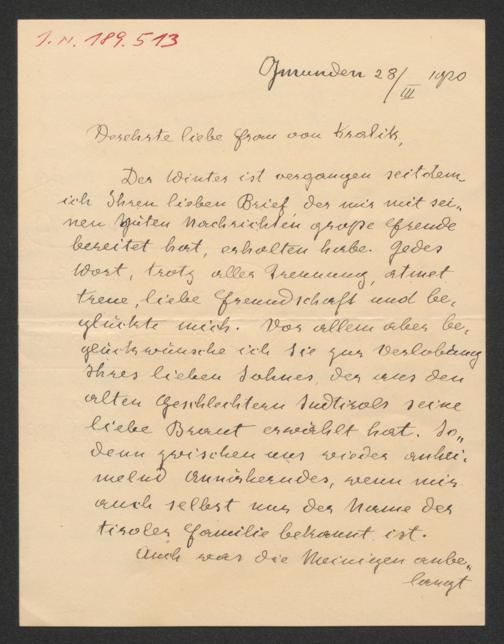 J.N. 189.513
Gmunden 28/III 1920
Verehrte liebe Frau von Kralik,
Der Winter ist vergangen seitdem
ich Ihren lieben Brief der mir mit sei„
nen guten Nachrichten große Freude
bereitet hat, erhalten habe. Jedes
Wort, trotz aller Trennung, atmet
treue, liebe Freundschaft und be„
glückte mich. Vor allem aber be„
glückwünsche ich Sie zur Verlobung
Ihres lieben Sohnes, der aus den
alten Geschlechtern Südtirols seine
liebe Braut erwählt hat. So„
denn zwischen uns wieder anhei„
melnd Annäherndes, wenn mir
auch selbst nur der Name der
tiroler Familie bekannt ist.
Auch was die Meinigen anbe„
langt